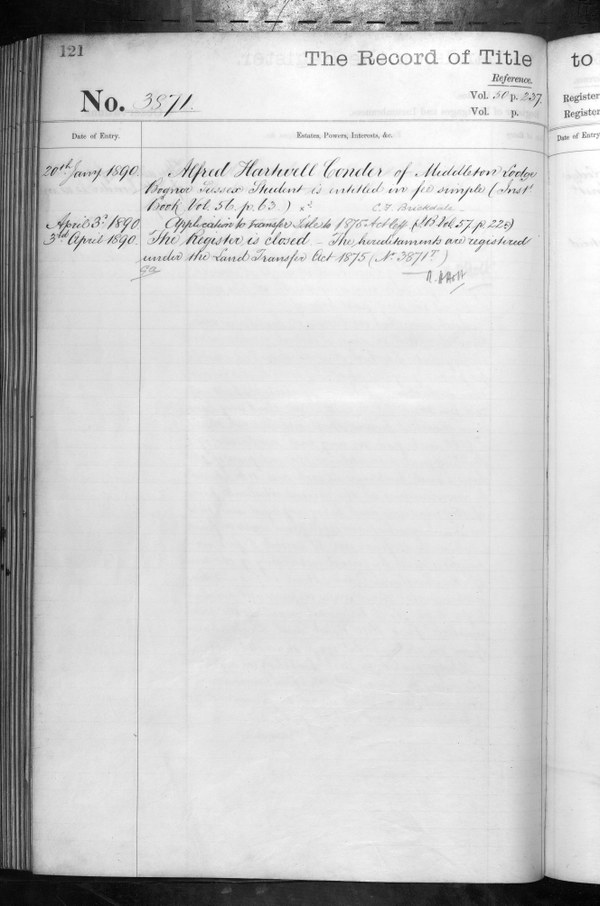 121
The Record of Title
to
Reference.
No. 3871.
Vol. 50 p. 237.
Vol. p.
Register
Register
Date of Entry.
Estates, Powers, Interests, &c.
Date of Entry
20th Jany 1890. Alfred Hartwell Conder of Middleton Lodge
Bognor Sussex Student is entitled in fee simple (Inst
Book Vol. 56. p. 63.)
C. F. Brickdale.
April 3. 1890. Application to transfer title to 1875 Act (I.B. Vol. 57. p. 225)
3rd April 1890. The Register is closed – The hereditaments are registered
under the Land Transfer Act 1875 (No. 3871T)